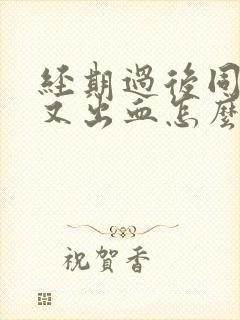 經期過後同
又出血怎麼
祝賀香